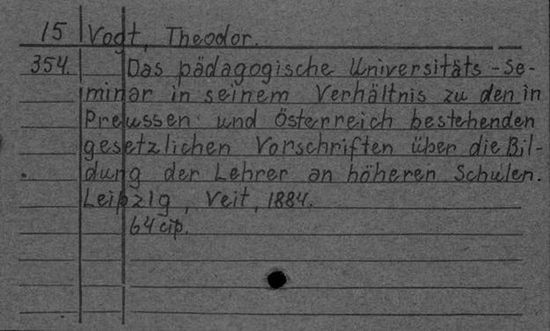 15 Vogt, Theodor.
354. Das pädagogische Universitäts-Se-
minar in seinem Verhältnis zu den in
Preussen und Österreich bestehenden
gesetzlichen Vorschriften über die Bil-
dung der Lehrer an höheren Schulen.
Leipzig, Veit, 1884.
64 cip.